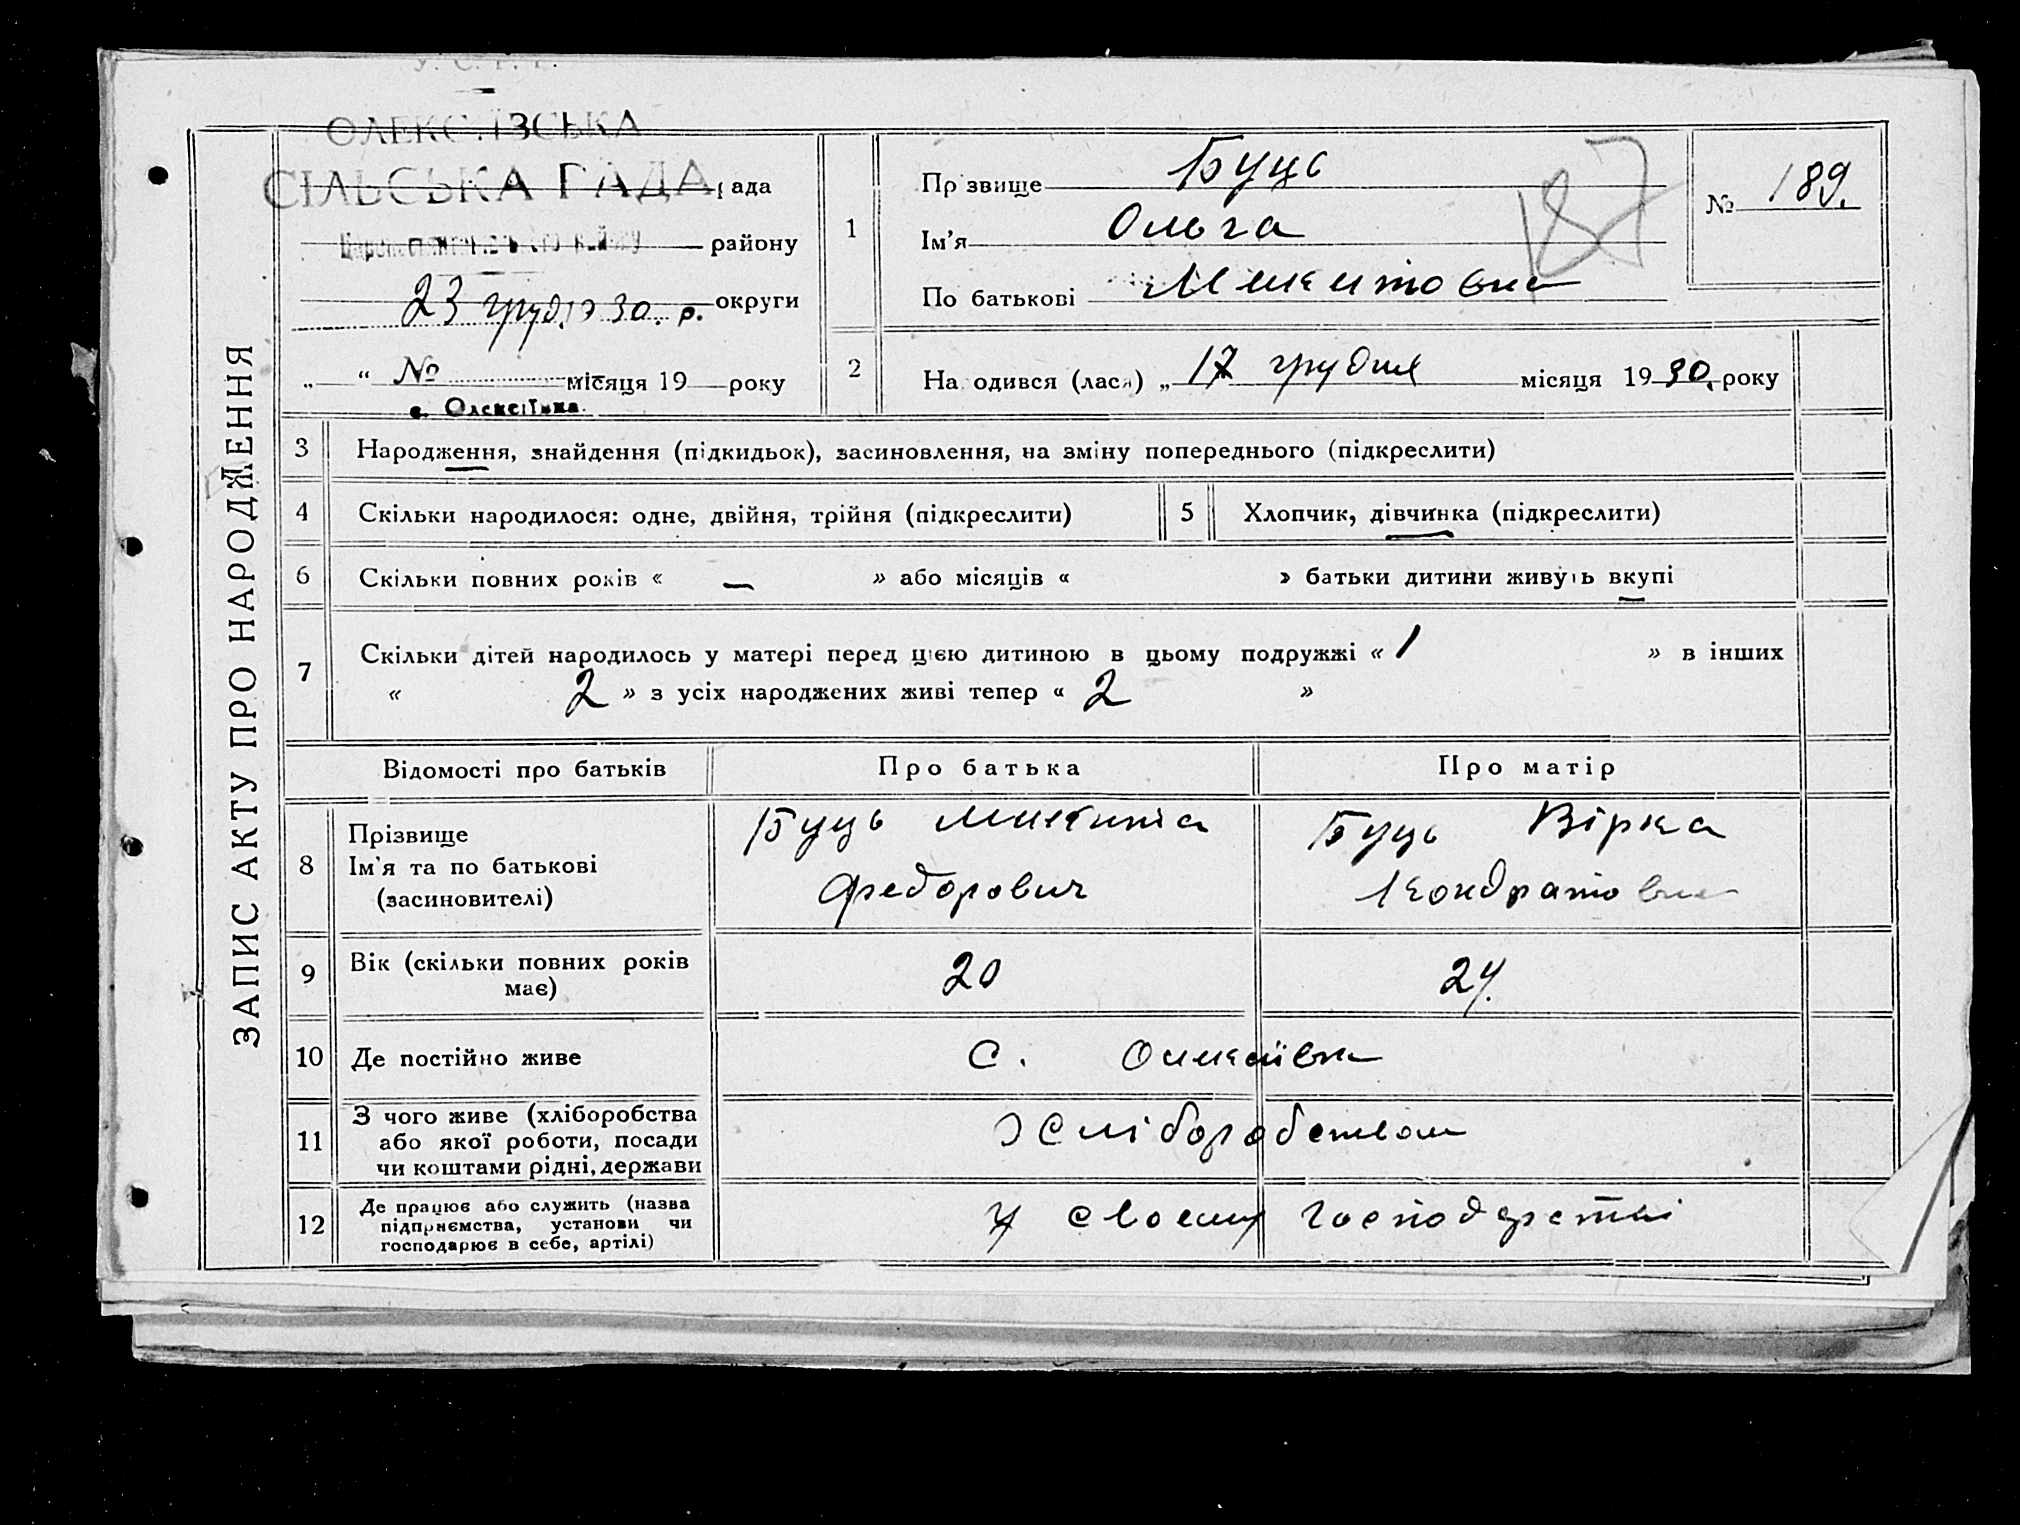 У. С. Р. Р.
ОЛЕКСІЇВСЬКА
СІЛЬСЬКА РАДА рада
району
23 груд. 1930. р. округи
„ “ № місяця 19 року
с. Олексіївка
ЗАПИС АКТУ ПРО НАРОДЖЕННЯ
1 Прізвище Буць
Ім’я Ольга
По батькові Микитовна
187
№ 189.
2 Народився (лася) „ 17 грудня місяця 1930. року
3 Народження, знайдення (підкидьок), засиновлення, на зміну попереднього (підкреслити)
4 Скільки народилося: одне, двійня, трійня (підкреслити) 5 Хлопчик, дівчинка (підкреслити)
6 Скільки повних років « — » або місяців « » батьки дитини живуть вкупі
7 Скільки дітей народилось у матері перед цією дитиною в цьому подружжі « 1 » в інших
« 2 » з усіх народжених живі тепер « 2 »
Відомості про батьків Про батька Про матір
8 Прізвище Буць Микита Буць Вірка
Ім’я та по батькові Федорович Кондратовна
(засиновителі)
9 Вік (скільки повних років 20 24.
має)
10 Де постійно живе с. Олексіївка
11 З чого живе (хліборобства
або якої роботи, посади Хліборобством
чи коштами рідні, держави
12 Де працює або служить (назва
підприємства, установи чи У своему господарстві
господарює в себе, артілі)